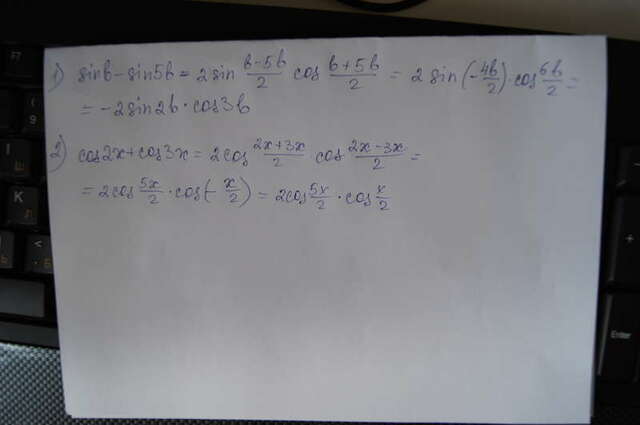 1) sinb - sin5b = 2 sin (b-5b)/2 cos (b+5b)/2 = 2 sin (-4b/2) · cos 6b/2 =
= -2sin2b · cos3b
2) cos2x + cos3x = 2cos (2x+3x)/2 · cos (2x-3x)/2 =
= 2cos 5x/2 · cos(- x/2) = 2cos 5x/2 · cos x/2
F7
Enter